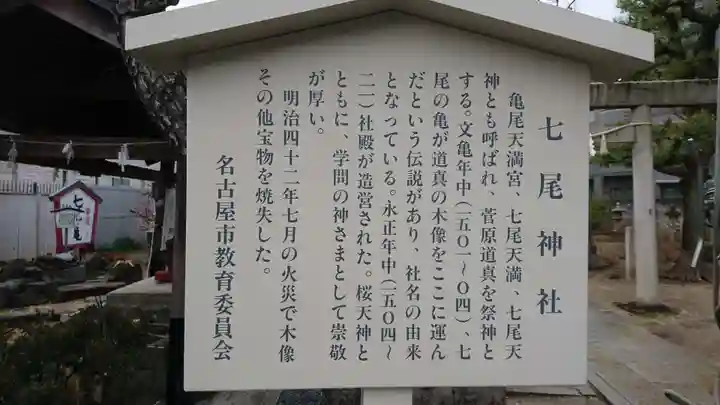 七尾神社
亀尾天満宮、七尾天満、七尾天
神とも呼ばれ、菅原道真を祭神と
する。文亀年中(一五〇一〜〇四)、七
尾の亀が道真の木像をここに運ん
だという伝説があり、社名の由来
となっている。永正年中(一五〇四〜
二一)社殿が造営された。桜天神と
ともに、学問の神さまとして崇敬
が厚い。
明治四十二年七月の火災で木像
その他宝物を焼失した。
名古屋市教育委員会